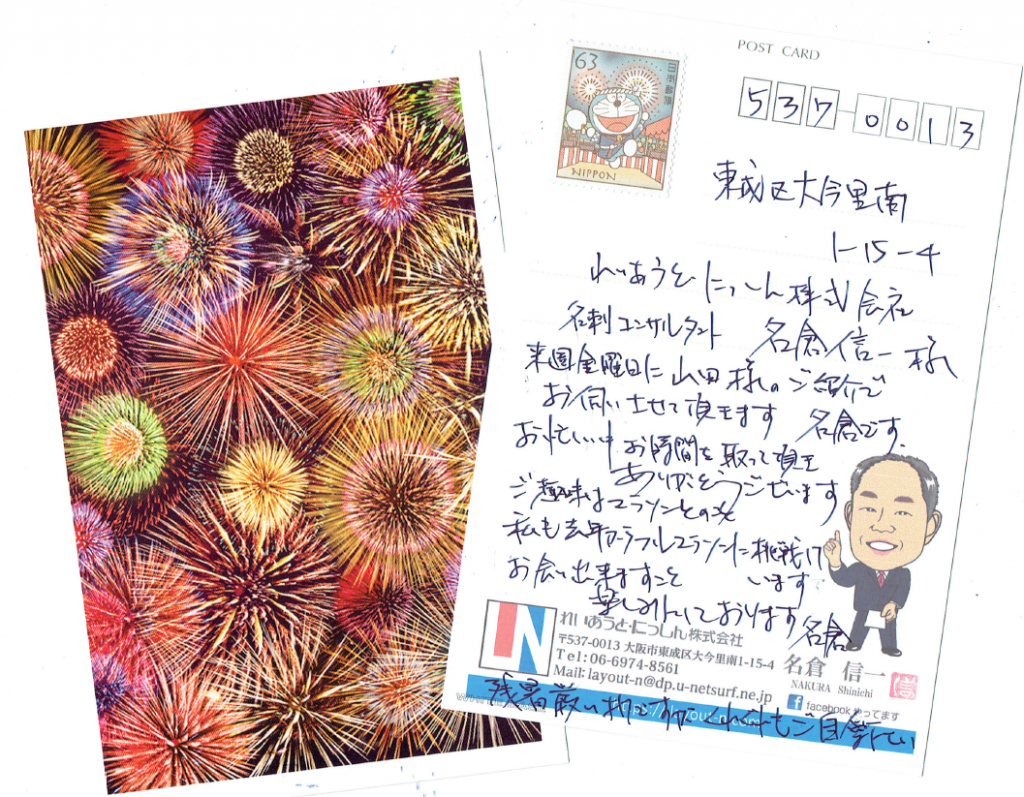 POST CARD
63
日本郵便
NIPPON
537-0013
東成区大今里南
1-15-4
れいあうと・にっしん株式会社
名刺コンサルタント 名倉信一 様
来週金曜日に山田様のご紹介で
お伺いさせて頂きます 名倉です.
お忙しい中 お時間を取って頂き
ありがとうございます
ご趣味はマラソンとの事
私も去年フルマラソンに挑戦して
います
お会い出来ますこと
楽しみにしております 名倉
れいあうと・にっしん株式会社
〒537-0013 大阪市東成区大今里南1-15-4
Tel:06-6974-8561
Mail:layout-n@dp.u-netsurf.ne.jp
名倉 信一
NAKURA Shinichi
facebook やってます
残暑厳しい折ですがくれぐれもご自愛下さい